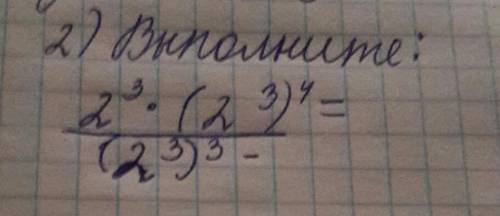 2) Выполните:
2³ · (2³)⁴ =
(2³)³ -